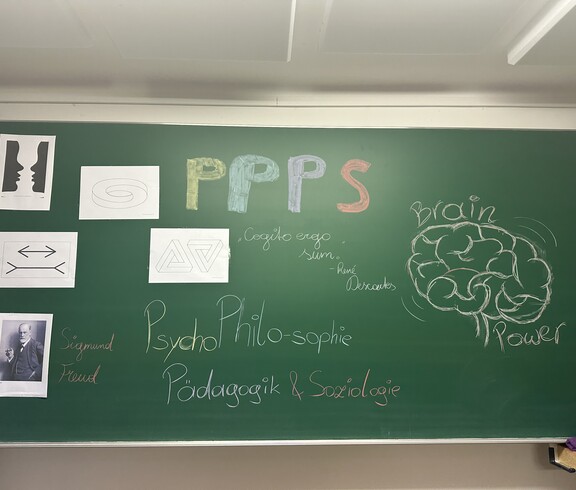 PPPS
Brain
„Cogito ergo
sum."
- René
Descartes
Power
PsychoPhilo-sophie
Sigmund
Freud
Pädagogik & Soziologie